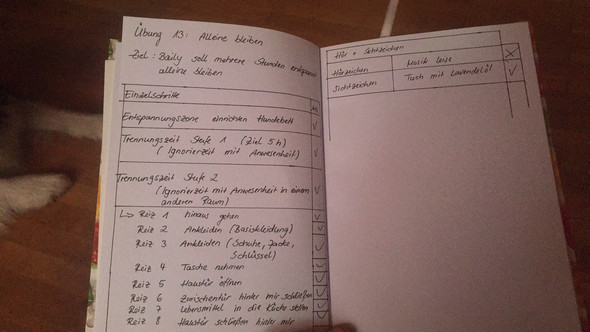 Übung 13: Alleine bleiben
Ziel: Baily soll mehrere Stunden entspannt
alleine bleiben
Einzelschritte
Entspannungszone einrichten Hundebett ✓
Trennungszeit Stufe 1 (Ziel 5h)
(Ignorierzeit mit Anwesenheit) ✓
Trennungszeit Stufe 2
(Ignorierzeit mit Anwesenheit in einem
anderen Raum) ✓
↳ Reiz 1 hinaus gehen ✓
Reiz 2 Ankleiden (Basiskleidung) ✓
Reiz 3 Ankleiden (Schuhe, Jacke,
Schlüssel) ✓
Reiz 4 Tasche nehmen ✓
Reiz 5 Haustür öffnen ✓
Reiz 6 Zwischentür hinter mir schließen ✓
Reiz 7 Lebensmittel in die Küche stellen ✓
Reiz 8 Haustür schließen hinter mir
Hör + Sichtzeichen
Hörzeichen Musik leise X
Sichtzeichen Tuch mit Lavendelöl ✓